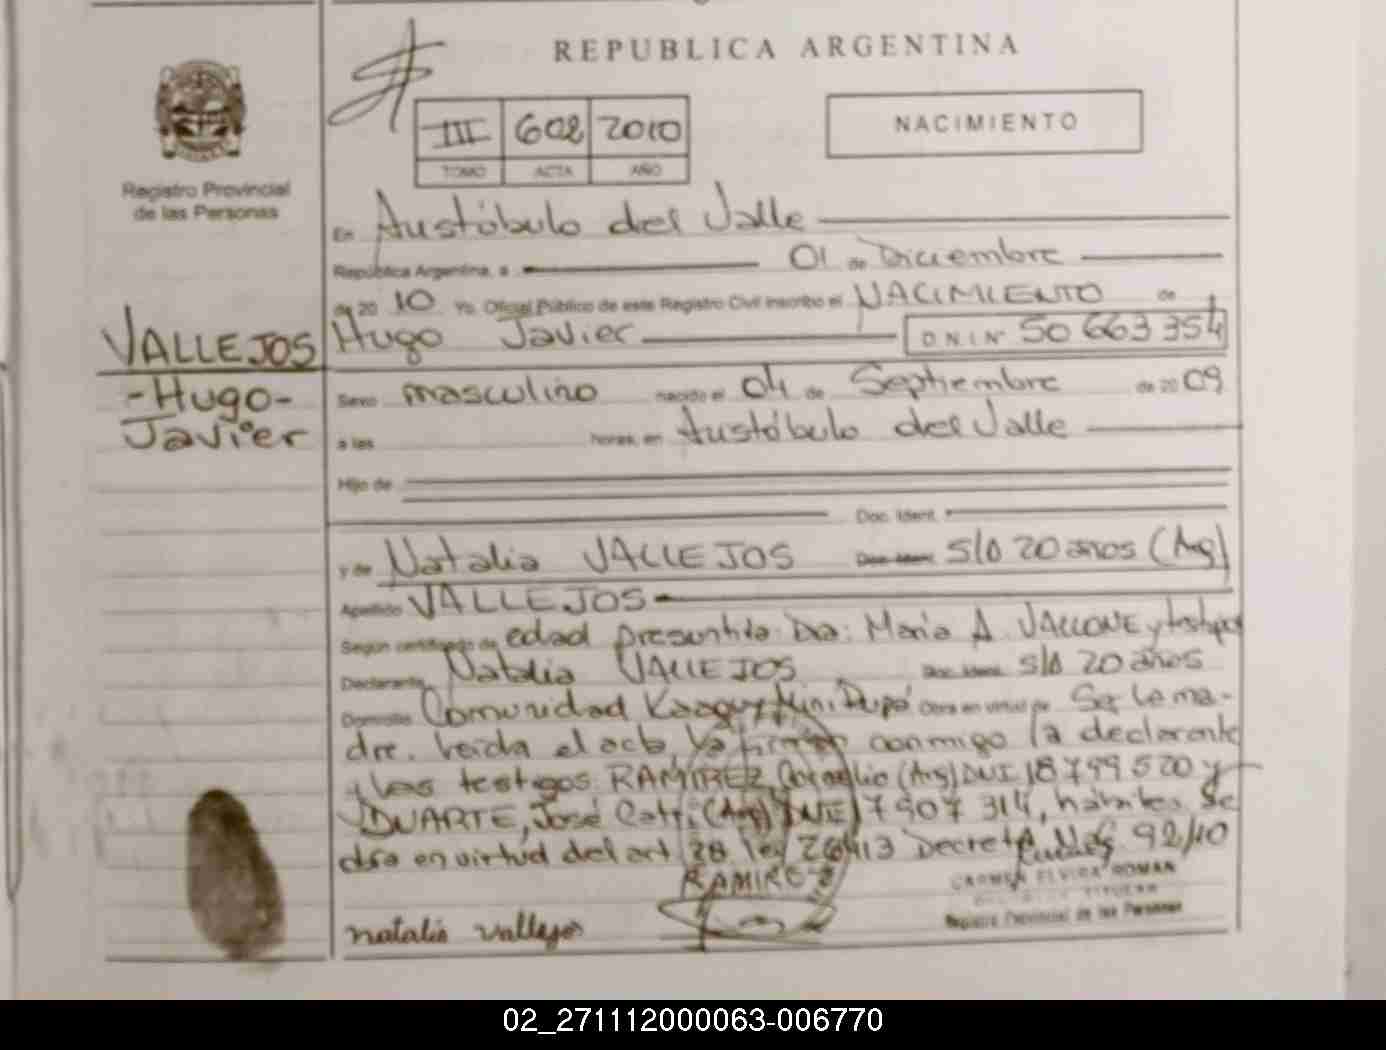 REPUBLICA ARGENTINA
III 602 2010
TOMO ACTA AÑO
NACIMIENTO
Registro Provincial
de las Personas
VALLEJOS
-Hugo-
Javier
En Austóbulo del Valle
República Argentina, a 01 de Diciembre
de 20 10 Yo. Oficial Público de este Registro Civil inscribo el NACIMIENTO de
Hugo Javier D.N.I Nº 50 663 354
Sexo masculino nacido el 04 de Septiembre de 20 09
a las horas, en Austóbulo del Valle
Hijo de
Doc. Ident.
y de Natalia VALLEJOS Doc. Ident. S/D 20 años (Arg)
Apellido VALLEJOS
Según certificado de edad presuntiva Dra: María A. VALLONE y testigos
Declarante Natalia VALLEJOS Doc. Ident. S/D 20 años
Domicilio Comunidad Mini Obra en virtud de Ser la ma-
dre. Leída el acta, la firman conmigo la declarante
y los testigos RAMIREZ, (Arg) DNI 18 799 520 y
DUARTE, José (Arg) DNI 17 907 314, hábiles. Se
en virtud del art 28 ley 26413 Decreto 92/10
RAMIREZ
natalia vallejos
CARMEN ELVIRA ROMAN
Registro Provincial de las Personas
02_271112000063-006770